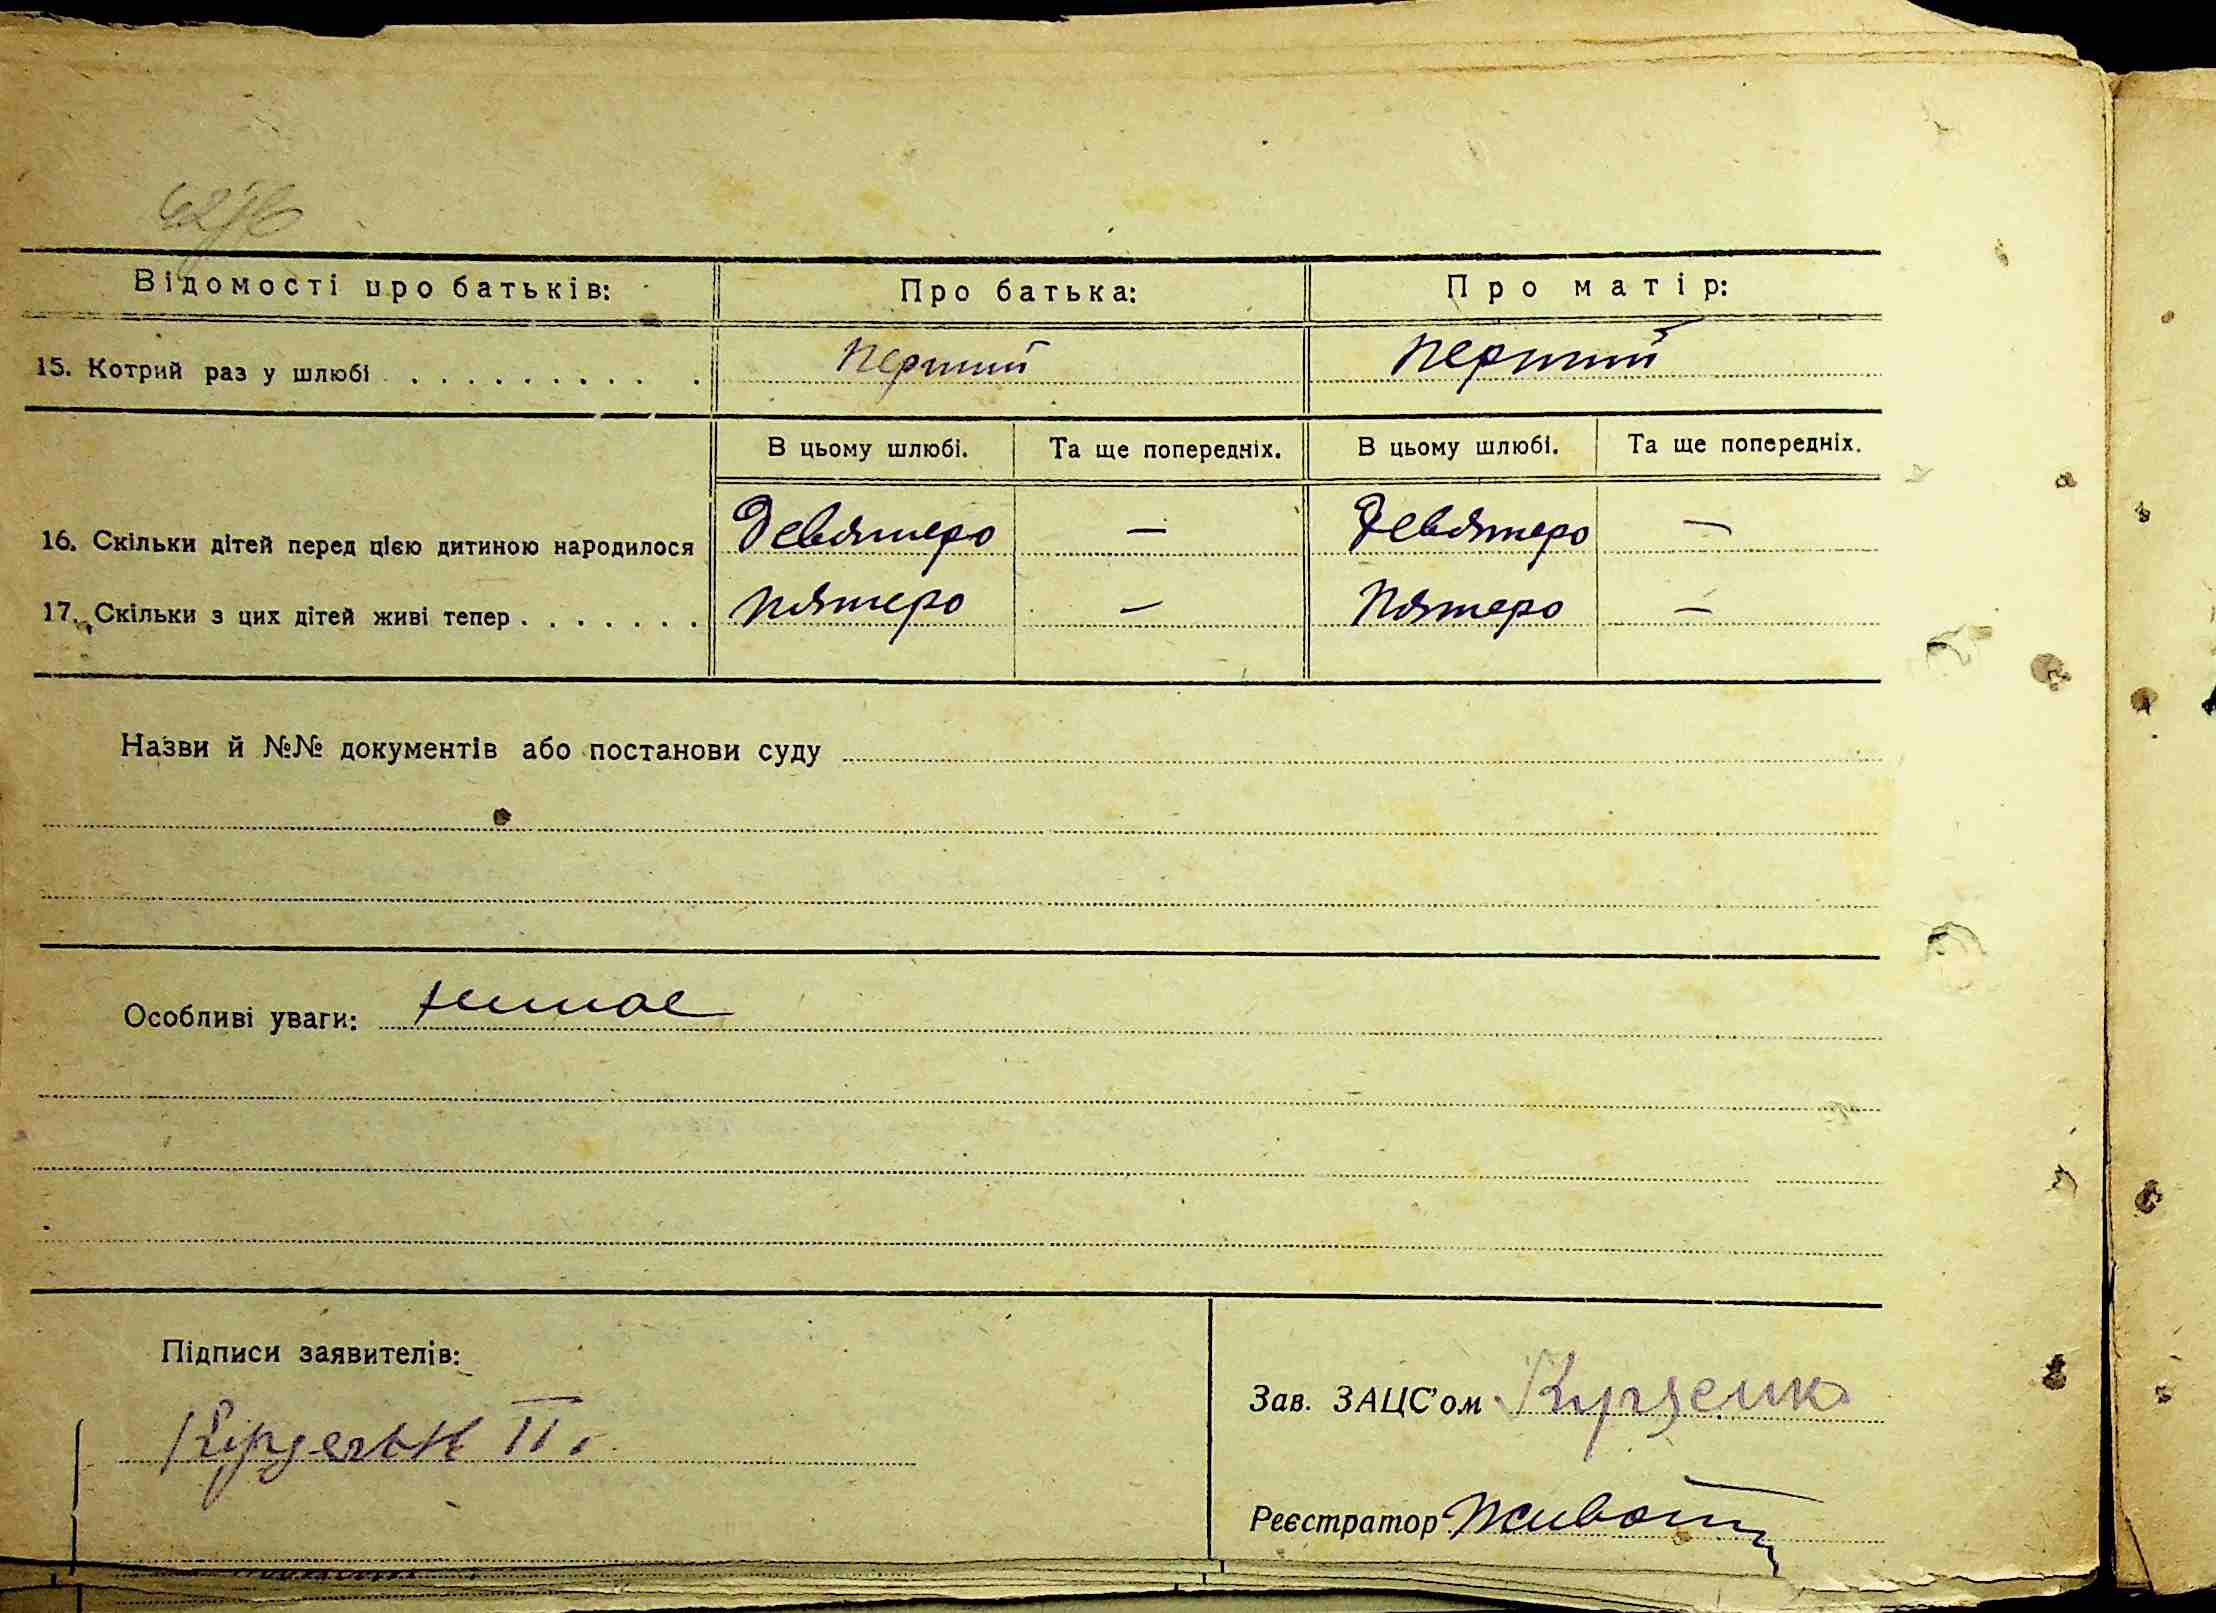 Відомості про батьків: Про батька: Про матір:
15. Котрий раз у шлюбі . . . . . . . . . . перший перший
В цьому шлюбі. Та ще попередніх. В цьому шлюбі. Та ще попередніх.
16. Скільки дітей перед цією дитиною народилося Девятеро — Девятеро —
17. Скільки з цих дітей живі тепер . . . . . . . Пятеро — Пятеро —
Назви й №№ документів або постанови суду
Особливі уваги: немає
Підписи заявителів:
Зав. ЗАЦС'ом
Реєстратор